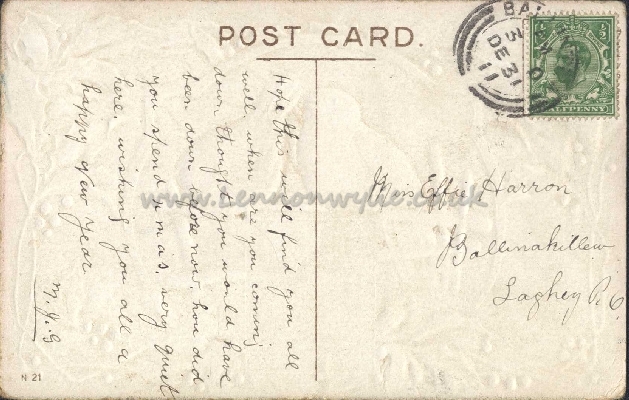 POST CARD.
Hope this will find you all
well, when are you coming
down thought you would have
been down before now, how did
you spend xmas, very quiet
here, wishing you all a
happy New Year
M. J. G
Miss Effie Harron
Ballinakillew
Laghey P. O.
DE 31
11
HALFPENNY
N 21